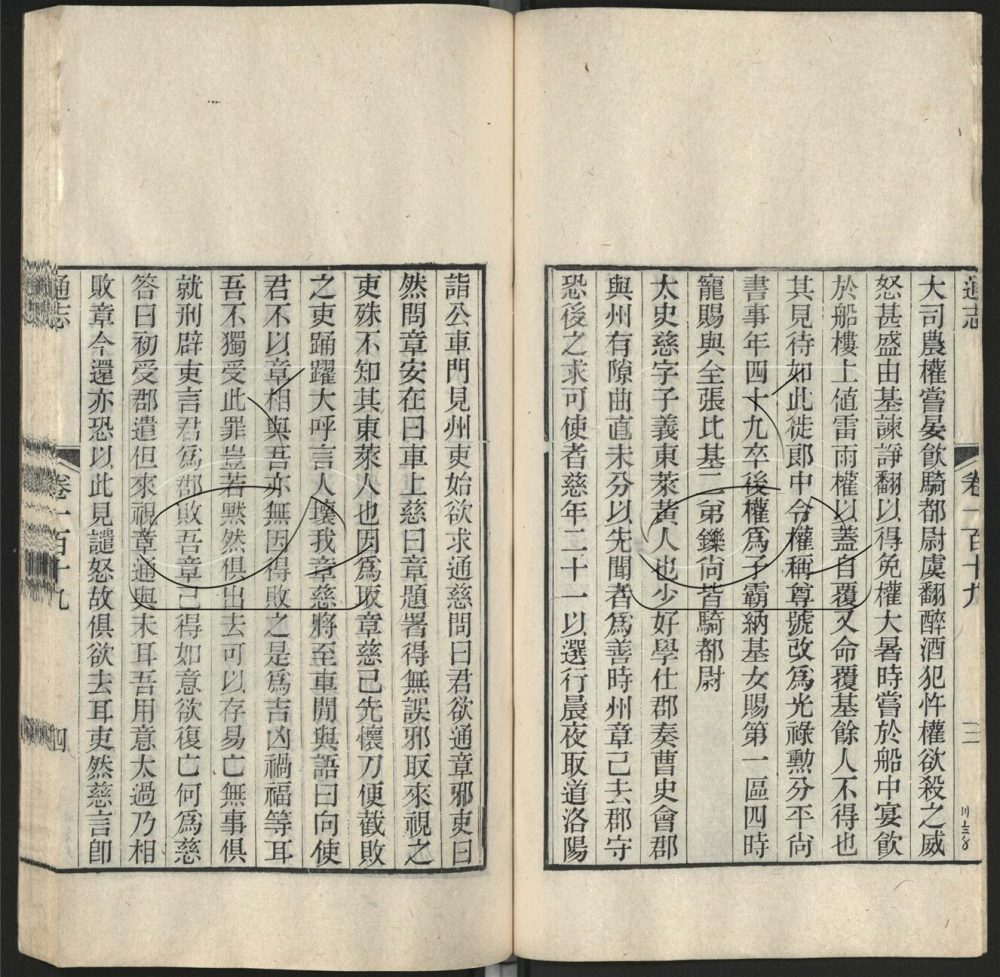 通志
卷一百十九
三
大司農權嘗宴飲騎都尉虞翻醉酒犯忤權欲殺之威
怒甚盛由基諫諍翻以得免權大暑時嘗於船中宴飲
於船樓上値雷雨權以蓋自覆又命覆基餘人不得也
其見待如此徙郎中令權稱尊號改爲光祿勳分平尚
書事年四十九卒後權爲子霸納基女賜第一區四時
寵賜與全張比基二弟鑠尚皆騎都尉
太史慈字子義東萊黃人也少好學仕郡奏曹史會郡
與州有隙曲直未分以先聞者爲善時州章已去郡守
恐後之求可使者慈年二十一以選行晨夜取道洛陽
詣公車門見州吏始欲求通慈問曰君欲通章邪吏曰
然問章安在曰車上慈曰章題署得無誤邪取來視之
吏殊不知其東萊人也因爲取章慈已先懷刀便截敗
之吏踊躍大呼言人壞我章慈將至車閒與語曰向使
君不以章相與吾亦無因得敗之是爲吉凶禍福等耳
吾不獨受此罪豈若默然俱出去可以存易亡無事俱
就刑辟吏言君爲郡敗吾章已得如意欲復亡何爲慈
答曰初受郡遣但來視章通與未耳吾用意太過乃相
敗章今還亦恐以此見譴怒故俱欲去耳吏然慈言卽
通志
卷一百十九
四